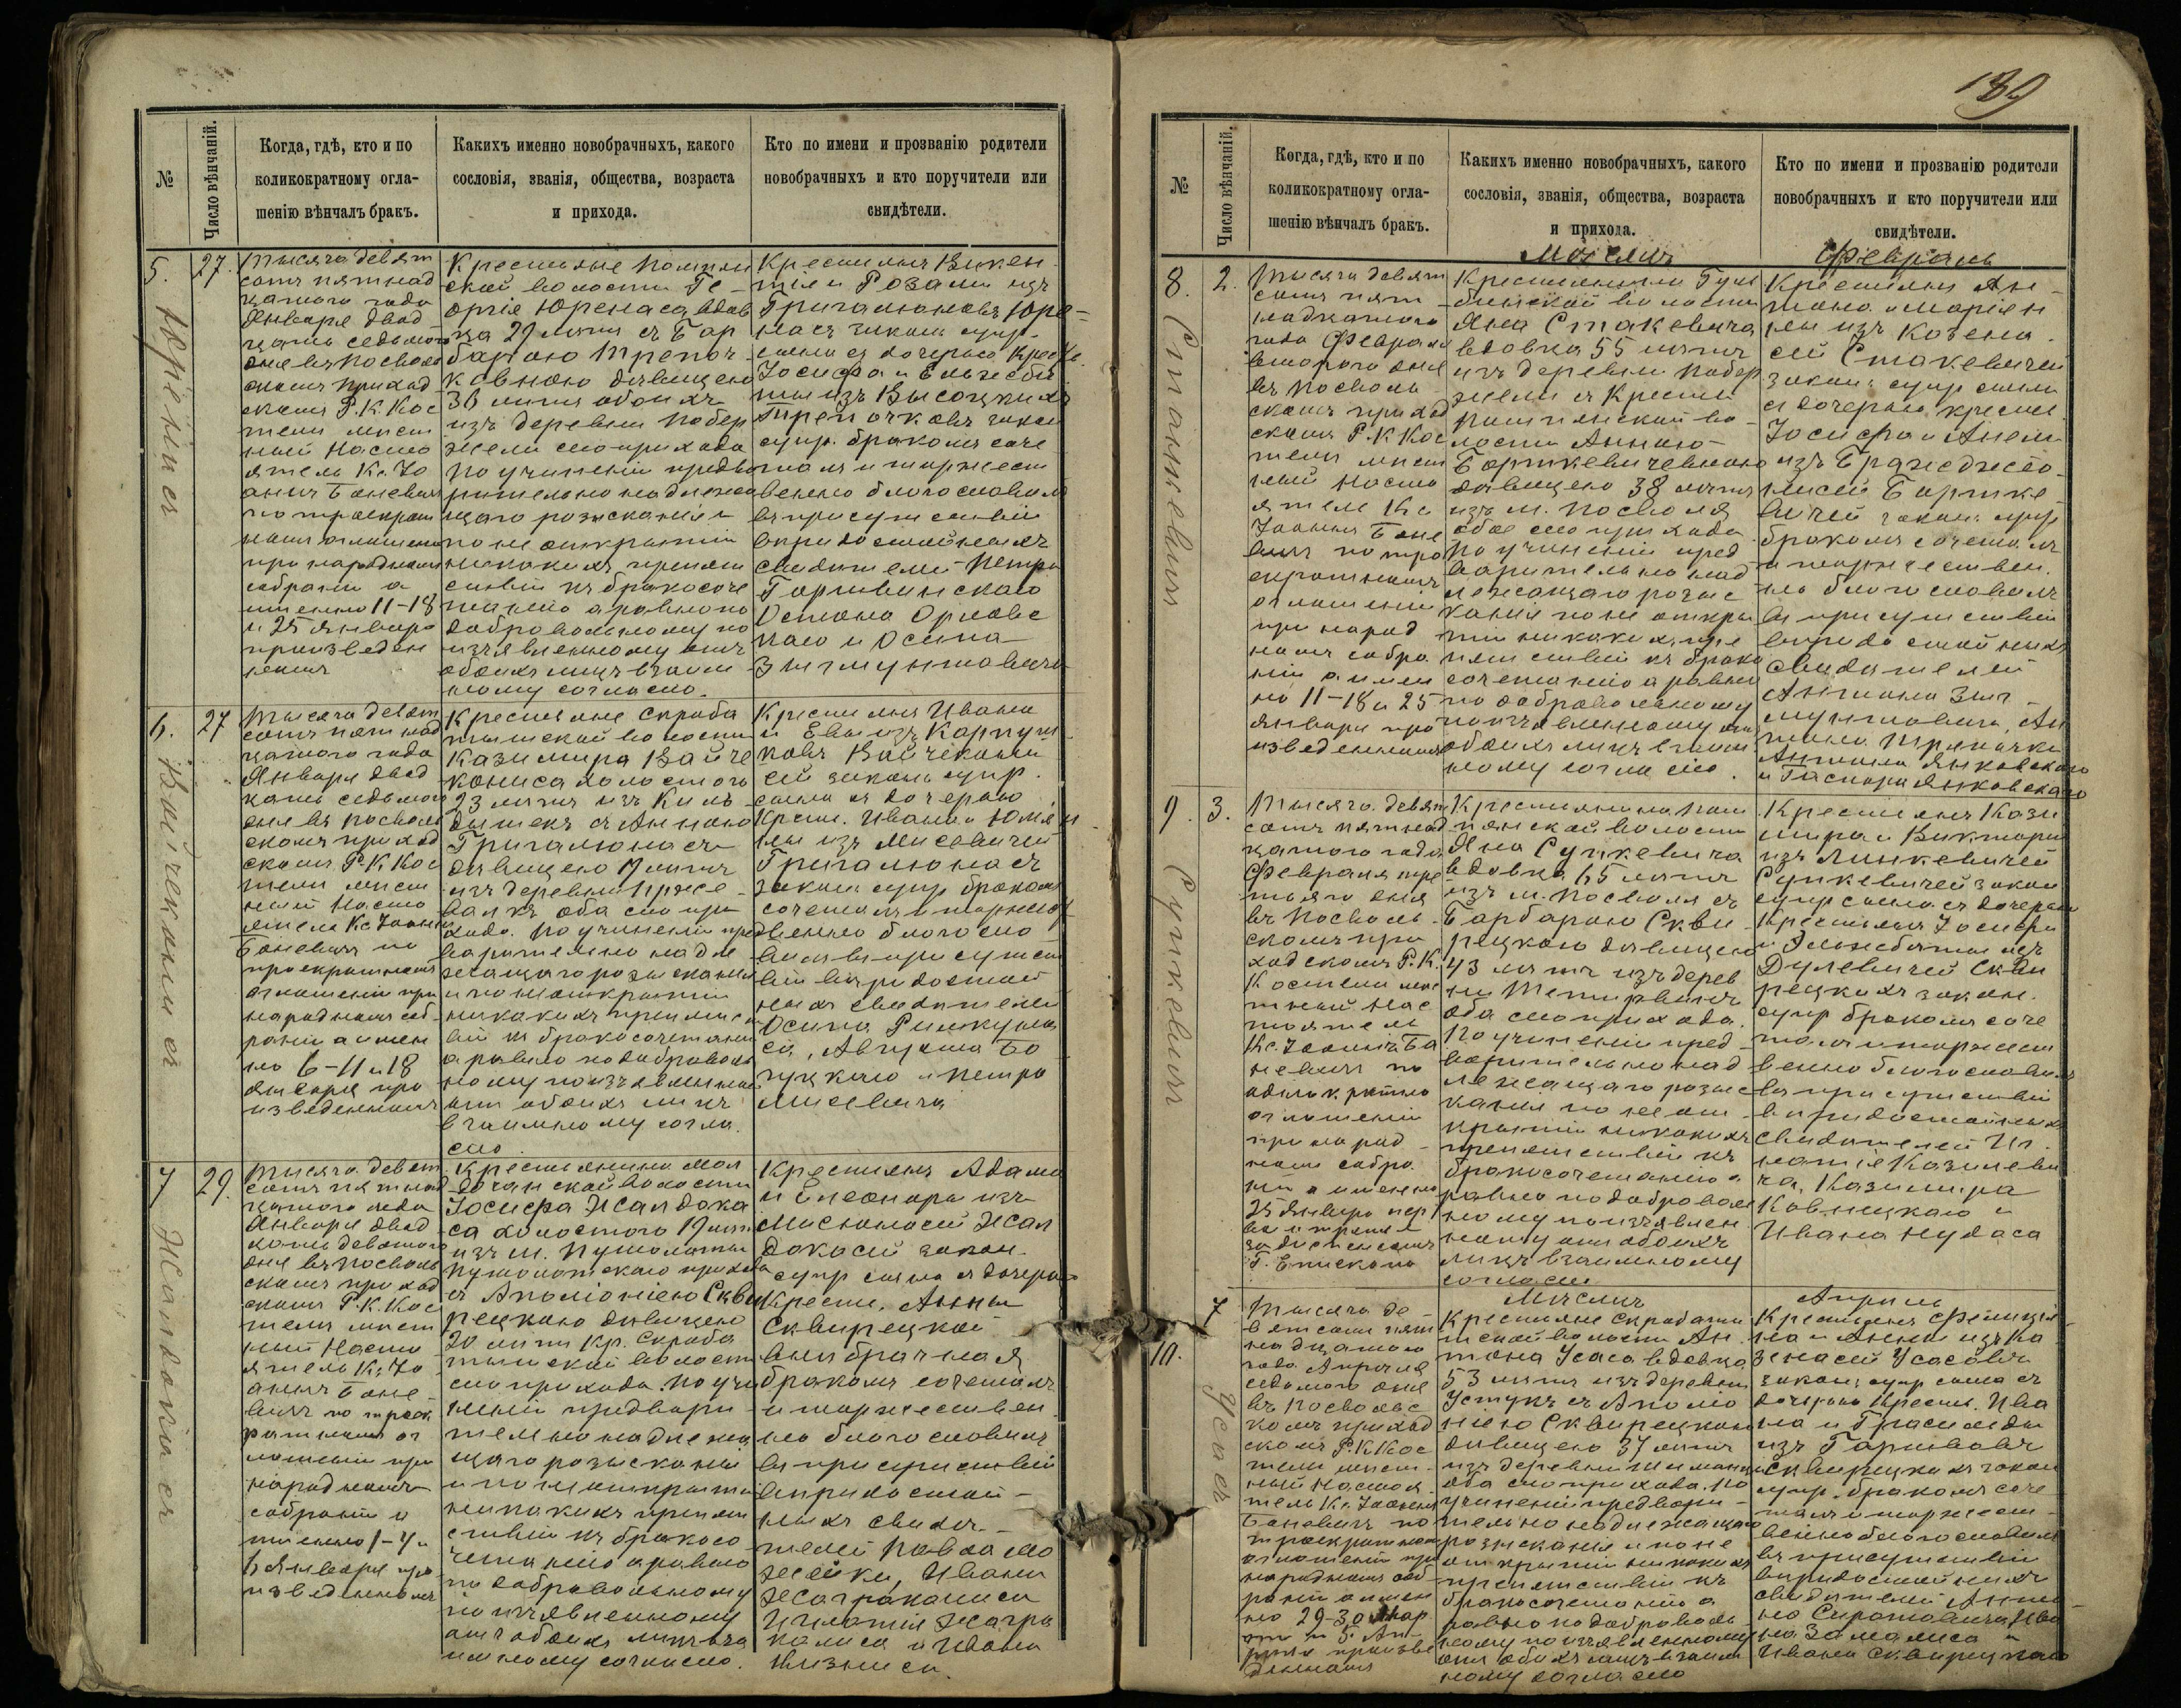 189
№
Число вѣнчаній.
Когда, гдѣ, кто и по
коликократному огла-
шенію вѣнчалъ бракъ.
Какихъ именно новобрачныхъ, какого
сословія, званія, общества, возраста
и прихода.
Кто по имени и прозванію родители
новобрачныхъ и кто поручители или
свидѣтели.
5.
27.
Тысяча девят
сотъ пятнад
цатаго года
Января двад
цать седьмого
дня въ Посволь
скомъ приход
скомъ Р. К. Кос
телѣ мѣст
ный Насто
ятель Кс. Іо
аннъ Баневичъ
по троекрат
номъ оглашеніи
при народномъ
собраніи а
именно 11-18
и 25 Января
произведен
номъ
Крестьяне Помпян
ской волости Ге-
оргія Юренаса вдов
ца 29 лѣтъ съ Бар
барою Трепоч
ковною дѣвицею
36 лѣтъ обоихъ
изъ деревни Побер
жели сего прихода
По учиненіи предва
рительно надлежа
щаго розысканія и
по не открытіи
никакихъ препят
ствій къ бракосоче
танію а равно по
добровольному по
изъявленному отъ
обоихъ лицъ взаим
ному согласію.
Крестьянъ Викен
тія и Розаліи изъ
Григалюновъ Юре-
насъ закон. супр.
сына съ дочерью крест.
Іосифа и Ельжбе
ты изъ Высоцкихъ
Трепочковъ закон
супр. бракомъ соче
талъ и торжест
венно благословилъ
въ присутствіи
вѣридостойныхъ
свидѣтелей Петра
Горшвинскаго
Остана Орловс
каго и Осипа
Зыгмунтовича
6.
27
Тысяча девят
сотъ пятнад
цатаго года
Января двад
цать седьмого
дня въ Посволь
скомъ приход
скомъ Р. К. Кос
телѣ мѣст
ный Насто
ятель Кс. Іоаннъ
Баневичъ по
троекратномъ
оглашеніи при
народномъ соб
раніи а имен
но 6-11 и 18
Января про
изведенномъ
Крестьяне Скроба
тышской волости
Казимира Вайче
кониса холостого
23 лѣтъ изъ Киль
дышекъ съ Анною
Григалюнасъ
дѣвицею 17 лѣтъ
изъ деревни Прже-
валкъ оба сего при
хода. По учиненіи пред
варительно надле
жащаго розысканія
и по не открытіи
никакихъ препятст
вій къ бракосочетанію
а равно по доброволь
ному по изъявленному
отъ обоихъ лицъ
взаимному согла
сію.
Крестьянъ Ивана
и Евы изъ Карпуш
ковъ Вайчекони
сей закон. супр.
сына съ дочерью
Крест. Ивана и Юліан
ны изъ Мисевичей
Григалюнасъ
закон. супр. бракомъ
сочеталъ и торжест
венно благосло
вилъ въ присутст
віи вѣридостой
ныхъ свидѣтелей
Осипа Римкуна
са, Августа Бо
гуцкаго и Петра
Мисевича
7
29.
Тысяча девят
сотъ пятнад
цатаго года
Января двад
цать девятого
дня въ Посволь
скомъ приход
скомъ Р. К. Кос
телѣ мѣст
ный Насто
ятель Кс. Іо
аннъ Бане-
вичъ по троек
ратномъ ог
лашеніи при
народномъ
собраніи а
именно 1-4 и
6 Января про
изведенномъ
Крестьянина
Іосифа Жалдока
са холостого 19 лѣтъ
изъ м. Пумпяны
съ Аполоніею Скви
рецкою дѣвицею
20 лѣтъ Кр. Скроба
тышской волости
сего прихода. По учи
неніи предвари
тельно надлежа
щаго розысканія
и по не открытіи
никакихъ препят
ствій къ бракосо
четанію а равно
по добровольному
по изъявленному
отъ обоихъ лицъ вза
имному согласію.
Крестьянъ Адама
и Елеоноры изъ
Жал
докасъ закон.
супр сына съ дочерью
Крест. Анны
Сквирецкой
внѣбрачная
бракомъ сочеталъ
и торжествен
но благословилъ
въ присутствіи
вѣридостой-
ныхъ свидѣ-
телей Павла Мо
жейки, Ивана
Жаграканиса
Игнатія Жагра
каниса и Ивана
Юріеншеъ
Вайчеконисъ
Жалдокасъ
№
Число вѣнчаній.
Когда, гдѣ, кто и по
коликократному огла-
шенію вѣнчалъ бракъ.
Какихъ именно новобрачныхъ, какого
сословія, званія, общества, возраста
и прихода.
Кто по имени и прозванію родители
новобрачныхъ и кто поручители или
свидѣтели.
Мѣсяцъ Февраль
8.
2.
Стакевичъ
Тысяча девят
сотъ пят
надцатаго
года Февраля
второго дня
въ Посволь
скомъ приход
скомъ Р. К. Кос
телѣ мѣст
ный Насто
ятель Кс
Іоаннъ Бане
вичъ по тро
екратномъ
оглашеніи
при народ
номъ собра
ніи а имен
но 11-18 и 25
Января про
изведенномъ
Яна Стакевича
вдовца 55 лѣтъ
изъ деревни Побер
жели съ Крест.
Помпянской во
лости Анною
Борткевичевною
дѣвицею 38 лѣтъ
изъ м. Посволя
обое сего прихода
По учиненіи пред
варительно над
лежащаго розыс
канія по не откры
тіи никакихъ пре
пятствій къ брако
сочетанію а равно
по добровольному
по изъявленному отъ
обоихъ лицъ взаим
ному согласію.
Крестьянъ Ан
тона и Маріан
ны изъ
Стакевичей
закон. супр сына
съ дочерью крест.
Іосифа и Анели
Бортке
вичей закон. супр
бракомъ сочеталъ
и торжествен.
но благословилъ
въ присутствіи
вѣридостойныхъ
свидѣтелей
Антона Зыг
мунтовича, Ан
тона Трепачка
Антона Янковскаго
и Гаспара Янковскаго
9.
3.
Сункевичъ
Тысяча девят
сотъ пятнад
цатаго года
Февраля тре
тьяго дня
въ Посволь
скомъ при
ходскомъ Р. К.
Костелѣ мѣс
тный Нас
тоятель
Кс. Іоаннъ Ба
невичъ по
однократно
оглашеніи
при народ
номъ собра
ніи а именно
25 Января
Г. Епископа
Крестьянина Пом
пянской волости
Яна Сункевича
вдовца 65 лѣтъ
изъ м. Посволя съ
Барбарою Скви
рецкою дѣвицею
43 лѣтъ изъ дерев
ни
оба сего прихода.
По учиненіи пред
варительно над
лежащаго розыс
канія по не от
крытіи никакихъ
препятствій къ
бракосочетанію а
равно по доброволь
ному по изъявлен
ному отъ обоихъ
лицъ взаимному
согласію
Крестьянъ Кази
мира и Викторіи
изъ Линкевичей
Сункевичей закон
супр сына съ дочерью
крестьянъ Іосифа
и Эльжбеты изъ
Дулевичей Скви
рецкихъ закон.
супр бракомъ соче
талъ и торжест
венно благословилъ
въ присутствіи
вѣридостойныхъ
свидѣтелей Иг
натія Казилеви
ча, Казимира
Ковнецкаго и
Ивана
Мѣсяцъ Апрѣль
10.
7
Усасъ
Тысяча де
вятсотъ пят
надцатаго
года Апрѣля
седьмого дня
въ Посвольс
комъ приход
скомъ Р. К. Кос
телѣ мѣст
ный Настоя
тель Кс. Іоаннъ
Баневичъ по
троекратномъ
оглашеніи при
народномъ соб
раніи а имен
но 29-30 Мар
та и 5 Ап
рѣля произве
деннымъ
Крестьяне Скробаты
шской волости Ан
тона Усаса вдовца
53 лѣтъ изъ деревни
Устукъ съ Аполо
ніею Сквирецкою
дѣвицею 37 лѣтъ
изъ деревни
оба сего прихода. По
учиненіи предвари
тельно надлежащаго
розысканія и по не
открытіи никакихъ
препятствій къ
бракосочетанію а
равно по доброволь
ному по изъявленному
отъ обоихъ лицъ взаим
ному согласію
Крестьянъ Фелиція
на и Анны изъ Ка
Усасовъ
закон. супр сына съ
дочерью Крест. Ива
на и
изъ
Сквирецкихъ закон
супр. бракомъ соче
талъ и торжест
венно благословилъ
въ присутствіи
вѣридостойныхъ
свидѣтелей Анто
на Сиротовича, Ива
на и
Ивана Сквирецкаго